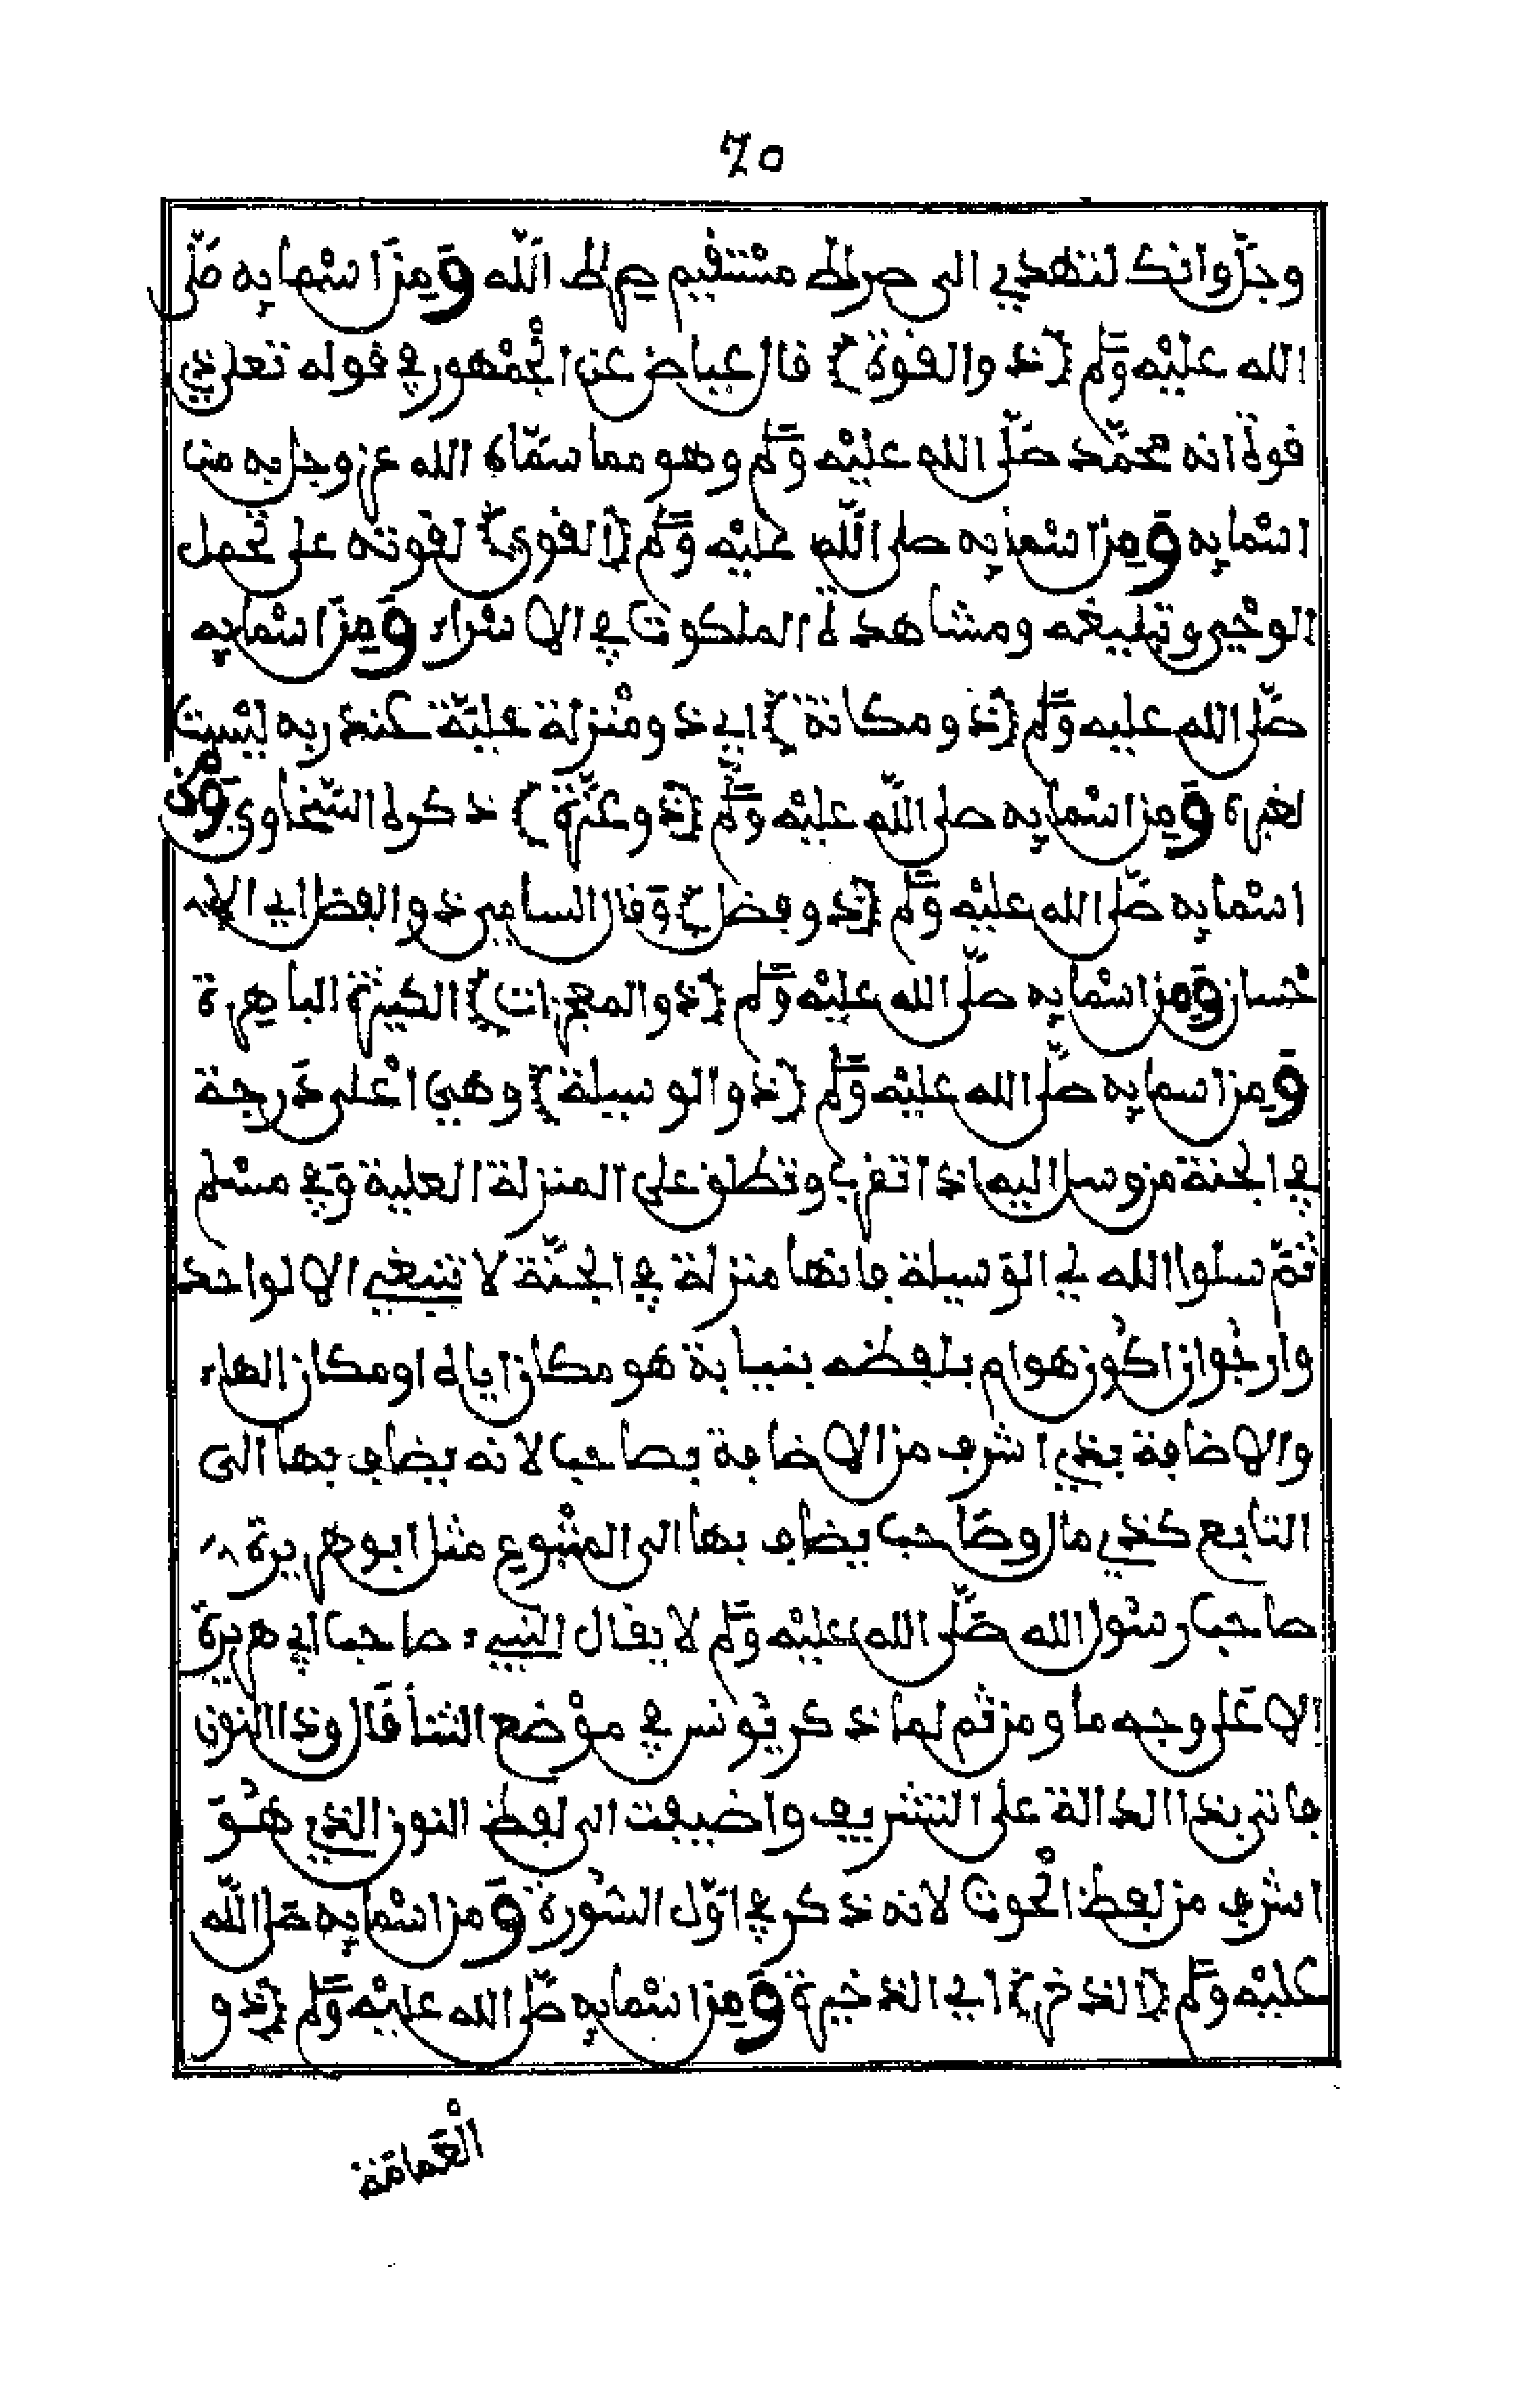 70
وجلّ وانك لتهدي الى صراط مستقيم صراط الله وَمِن اسْمايِه صلى
الله عليْه وَسلم (ذو القوة) قال عياض عن الجُمْهور في قوله تعلى ذي
قوة انه محمّد صلّى الله عليْه وَسلم وهو مما سمّاه الله عز وجل به من
اسْمايِه وَمِن اسْمايِه صلى الله عليْه وَسلم (القوي) لقوته على تحمل
الوحْيِ وتبليغه ومشاهدة الملكوت في الاسْراء وَمِن اسْمايِه
صلّى الله عليه وَسلم (ذو مكانة) اي ذو منْزلة عليّة عند ربه ليْست
لغيره وَمِن اسْمايِه صلى الله عليْه وسلم (ذو عزّة) ذكره السّخاوي وَمن
اسْمايِه صلّى الله عليْه وَسلم (ذو فضل) وَقال السامِي ذو الفضل اي الا
حْسان وَمِن اسْمايِه صلّى الله عليْه وَسلم (ذو المعجزات) الكثيرة الباهِرة
وَمِن اسمايِه صلّى الله عليْه وَسلم (ذو الوسيلة) وهي اعْلى دَرجة
في الجنة من وسل اليه اذا تقرب وتطلق على المنزلة العلية وَفي مسْلم
ثمّ سلوا الله لي الوَسيلة فانها منزلة في الجنّة لا تنبغي الا لواحد
وارجُو ان اكُون هو ام بلفظه بنيابة هو مكان اياه او مكان الهاء
والاضافة بذي اشرف من الاضافة بصاحب لانه يضاف بها الى
التابع كذي مال وصَاحب يضاف بها الى المتْبوع مثل ابو هريرة
صاحب رسُول الله صلّى الله عليْه وَسلم لا يقال النبيء صاحب ابي هريرة
الا عَلى وجه ما ومن ثم لما ذكر يُونس في موْضع الثنا قَال وذا النون
فاتى بذا الدالة على التشريف واضيفت الى لفظ النون الذي هُوَ
اشرف من لفظ الحُوت لانه ذكر في اوّل السُورة وَمن اسْمايِه صلى الله
عليْه وَسلم (الذخر) اي الذخيرة وَمِن اسْمايِه صلّى الله عليْه وَسلم (ذو
الْعَمامَة